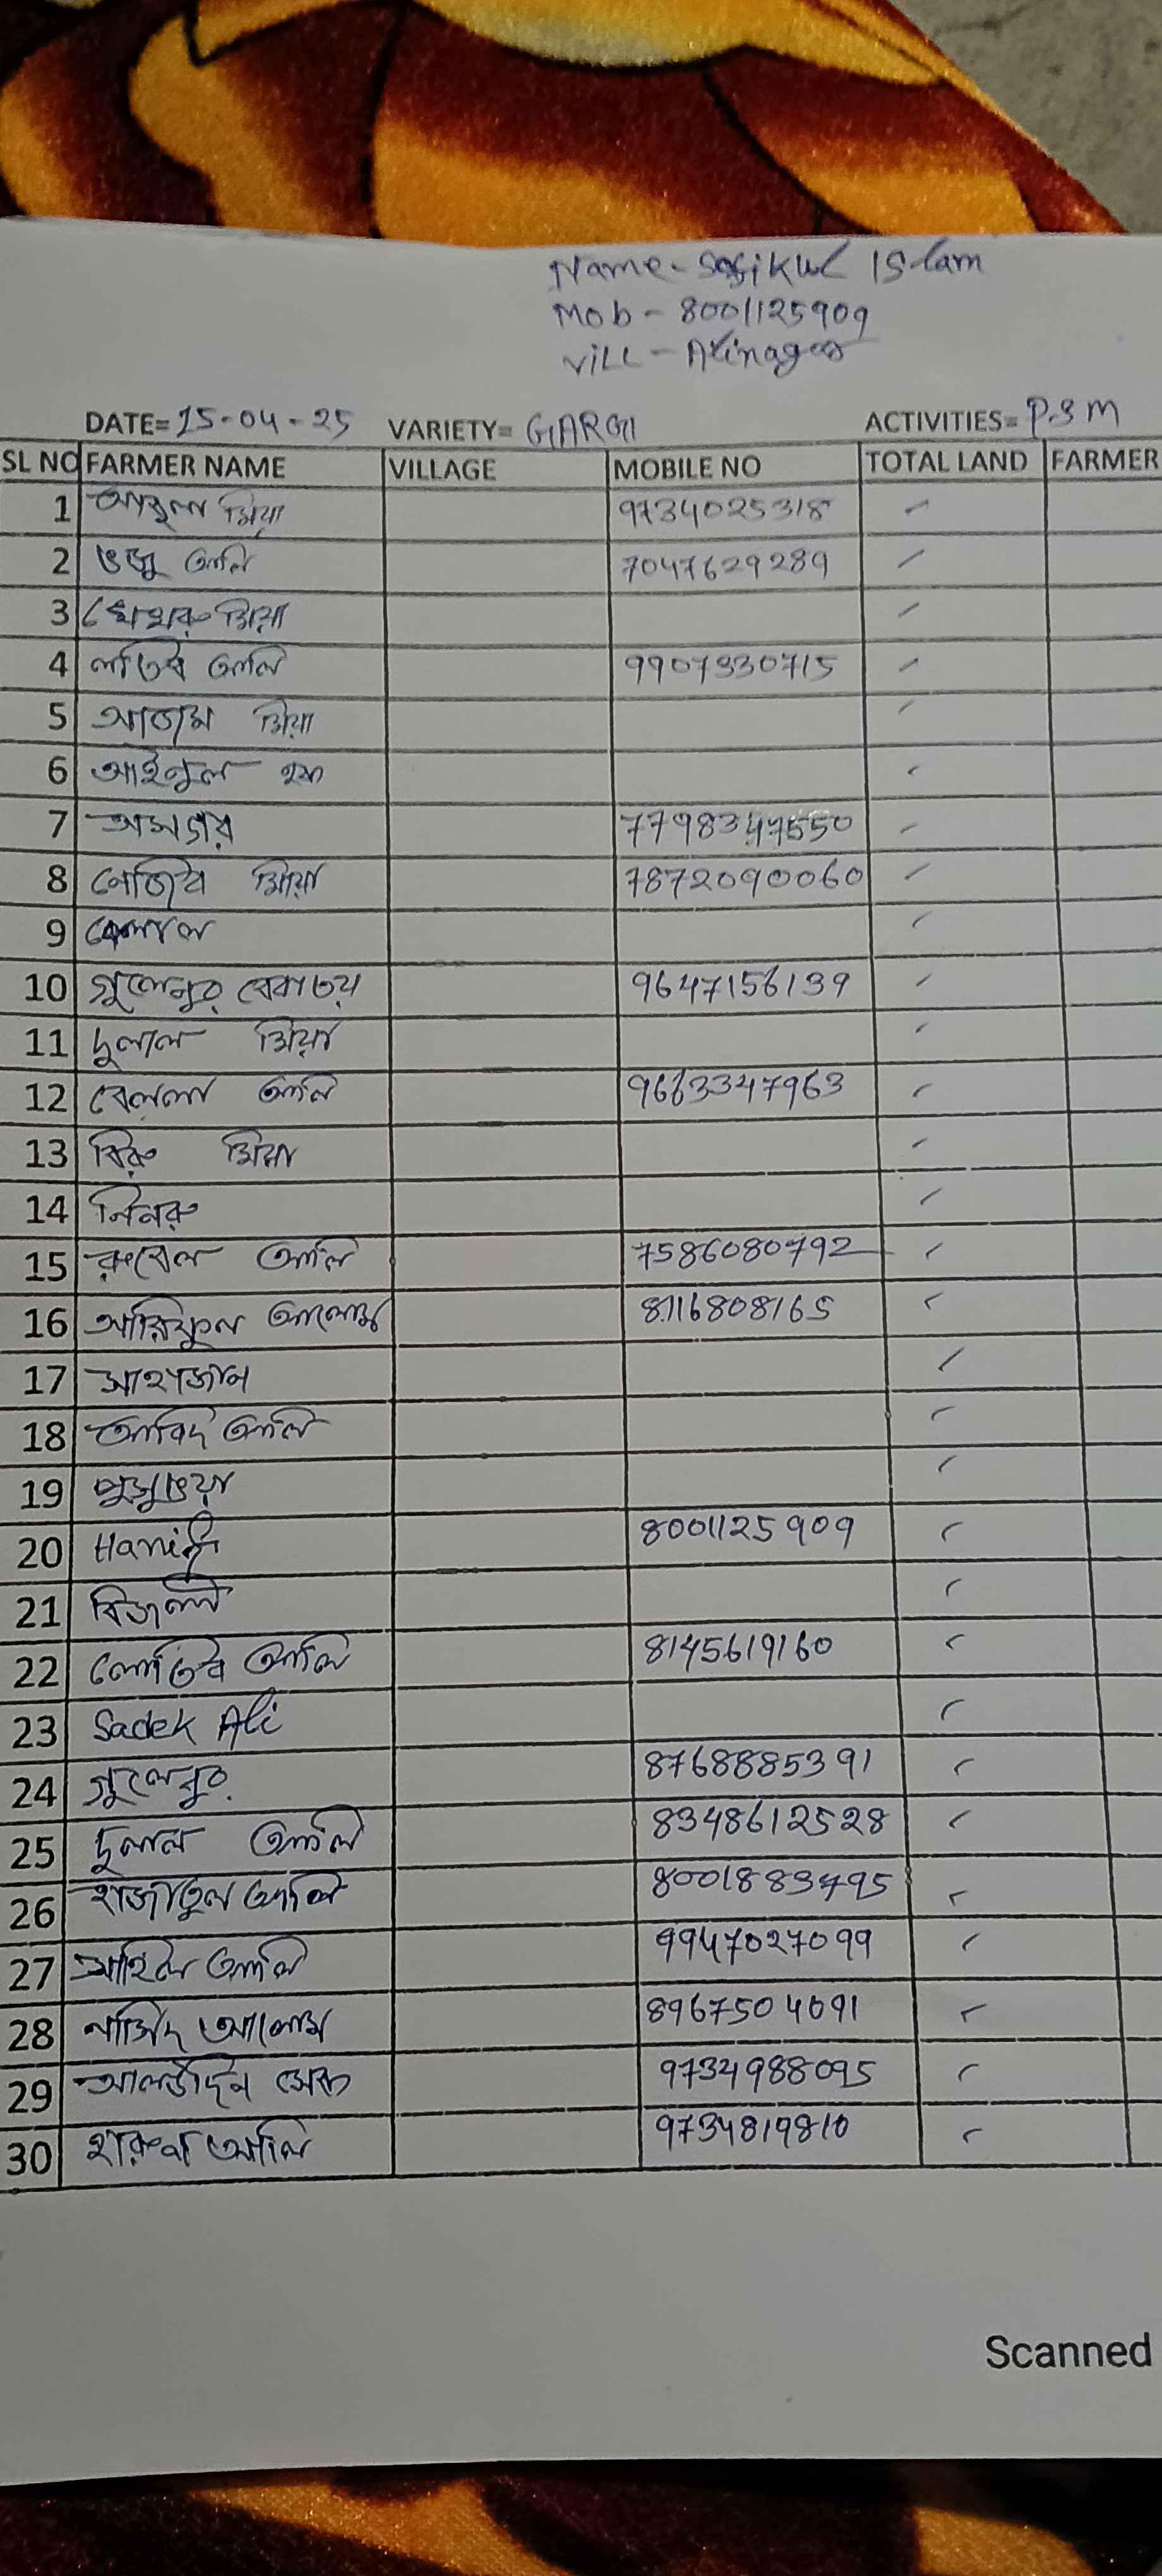 Name - Sofikul Islam
Mob - 8001125909
Vill - Alinagar
DATE= 15-04-25 VARIETY= GARGI ACTIVITIES= P.S M
SL NO FARMER NAME VILLAGE MOBILE NO TOTAL LAND FARMER
1 আবুল মিয়া 9734025318
2 আলি 7047629289
3 মিয়া
4 লতিব আলি 9907930715
5 আজাম মিয়া
6 আইনুল হক
7 আসগার 7798347550
8 নজিব মিয়া 7872090060
9 বেলাল
10 গুলেনুর 9647156139
11 দুলাল মিয়া
12 আলি 9663347963
13 বিরু মিয়া
14
15 রুবেল আলি 7586080792
16 আরিফুল আলোম 8116808165
17 সাহাজান
18 আবিদ আলি
19
20 Hanif 8001125909
21 বিজলী
22 লোতিব আলি 8145619160
23 Sadek Ali
24 গুলেনুর 8768885391
25 দুলাল আলি 8348612528
26 আলি 8001883795
27 আলি 9947027099
28 আলোম 8967504091
29 9734988095
30 আলি 9734819810
Scanned